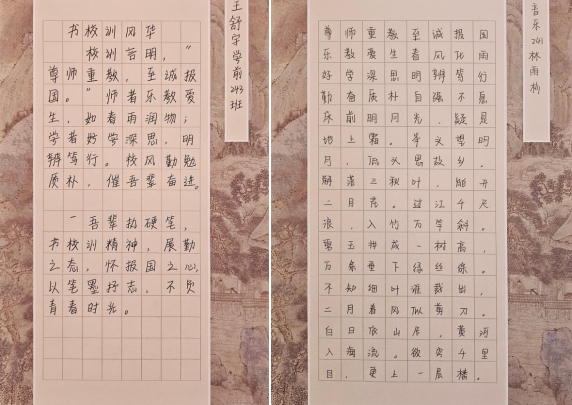 书校训风华
校训言明，“
尊师重教，至诚报
国。”师者乐教爱
生，如春雨润物；
学者好学深思，明
辨笃行。校风勤勉
质朴，催吾辈奋进。
吾辈执硬笔，
书校训精神，展勤
之态，怀报国之心，
以笔墨抒志，不负
青春时光。
王舒宇学前243班
尊师重教至诚报国
乐教爱生春风化雨
好学深思明辨笃行
勤奋质朴自强不息
床前明月光，疑是
地上霜。举头望明
月，低头思故乡。
解落三秋叶，能开
二月花。过江千尺
浪，入竹万竿斜。
碧玉妆成一树高，
万条垂下绿丝绦。
不知细叶谁裁出，
二月春风似剪刀。
白日依山尽，黄河
入海流。欲穷千里
目，更上一层楼。
音乐241林雨